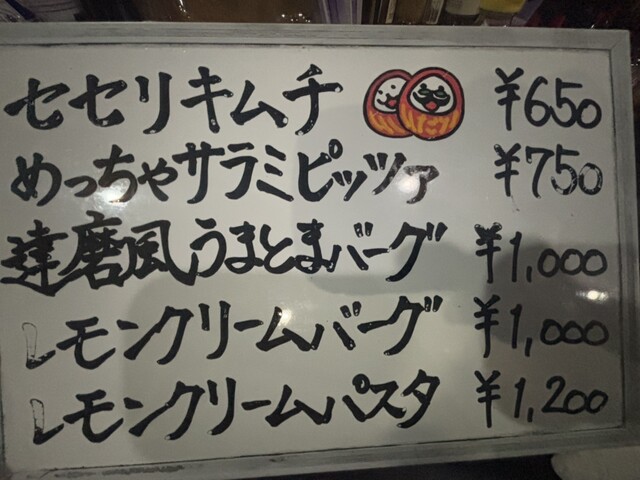 セセリキムチ ¥650
めっちゃサラミピッツァ ¥750
達磨風うまとまバーグ ¥1,000
レモンクリームバーグ ¥1,000
レモンクリームパスタ ¥1,200